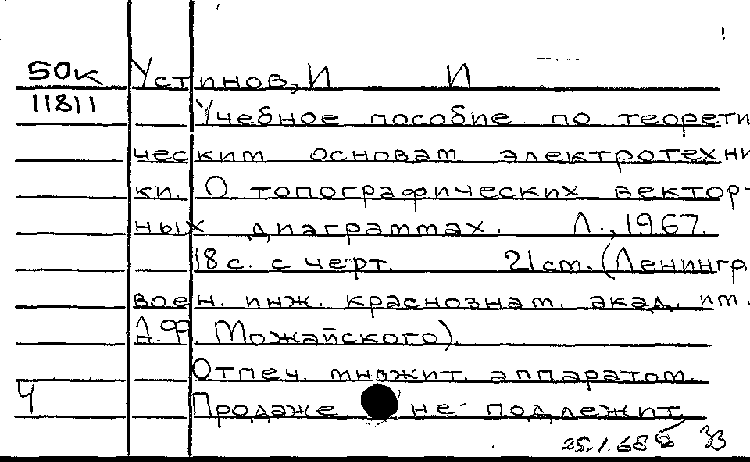 50к Устинов, И И
11811 Учебное пособие по теорети
ческим основам электротехни
ки. О топографических вектор-
ных диаграммах. Л., 1967.
18 с. с черт. 21 см. (Ленингр.
воен. инж. краснознам. акад. им.
А.Ф. Можайского).
Отпеч. множит. аппаратом.
Ч Продаже не подлежит.
25.1.68